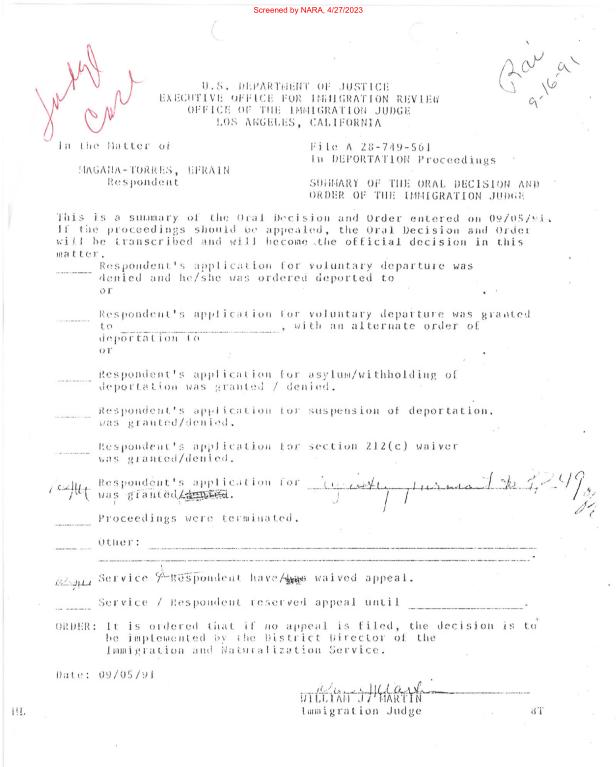 Screened by NARA, 4/27/2023
Judge
Case
Rai
9-16-91
U.S. DEPARTMENT OF JUSTICE
EXECUTIVE OFFICE FOR IMMIGRATION REVIEW
OFFICE OF THE IMMIGRATION JUDGE
LOS ANGELES, CALIFORNIA
In the Matter of
File A 28-749-561
in DEPORTATION Proceedings
MAGANA-TORRES, EFRAIN
Respondent
SUMMARY OF THE ORAL DECISION AND
ORDER OF THE IMMIGRATION JUDGE
This is a summary of the Oral Decision and Order entered on 09/05/91.
If the proceedings should be appealed, the Oral Decision and Order
will be transcribed and will become the official decision in this
matter.
Respondent's application for voluntary departure was
denied and he/she was ordered deported to
or
Respondent's application for voluntary departure was granted
to ____________________, with an alternate order of
deportation to
or
Respondent's application for asylum/withholding of
deportation was granted / denied.
Respondent's application for suspension of deportation,
was granted/denied.
Respondent's application for section 212(c) waiver
was granted/denied.
Respondent's application for registry pursuant to § 249
was granted/denied.
Proceedings were terminated.
Other:
Service / Respondent have/has waived appeal.
Service / Respondent reserved appeal until ______________.
ORDER: It is ordered that if no appeal is filed, the decision is to
be implemented by the District Director of the
Immigration and Naturalization Service.
Date: 09/05/91
WILLIAM J. MARTIN
Immigration Judge